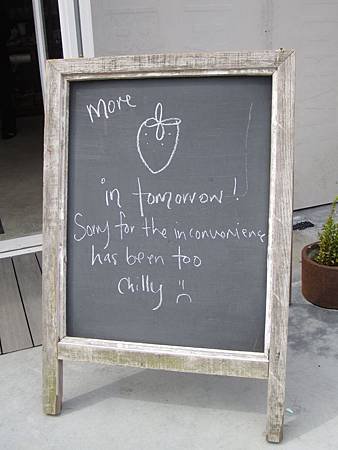 more
in tomorrow!
Sorry for the inconvenience
has been too
chilly :(